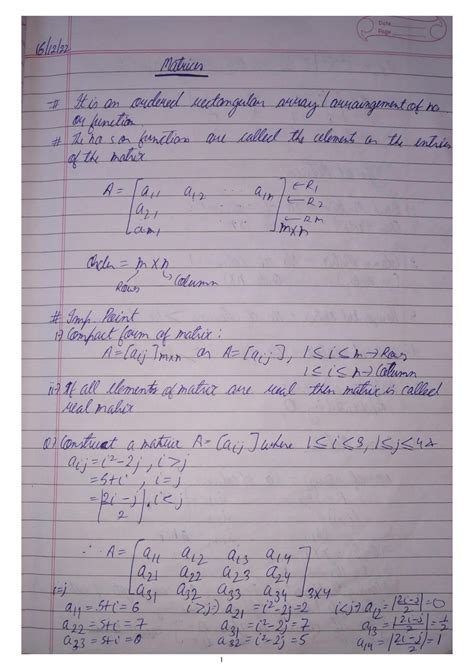 Date
Page
15/12/22
Matrices
# It is an ordered rectangular array/arrangement of no
or function.
# The no s or function are called the elements or the entries
of the matrix
A = [a11 a12 ... a1n ← R1
a21 ← R2
am1 ]m×n ← Rm
Order = m × n
Rows Column
# Imp. Point
i) Compact form of matrix :
A = [aij]m×n or A = [aij], 1 ≤ i ≤ m → Rows
1 ≤ i ≤ n → Column
ii) If all elements of matrix are real then matrix is called
real matrix
Q) Construct a matrix A = [aij] where 1 ≤ i ≤ 3, 1 ≤ j ≤ 4
aij = i²-2j , i>j
= 5+i , i=j
= |2i-j|/2 , i<j
∴ A = [a11 a12 a13 a14
a21 a22 a23 a24
a31 a32 a33 a34]3×4
i=j
a11 = 5+i = 6 i>j ⇒ a21 = i²-2j = 2 i<j ⇒ a12 = |2i-j|/2 = 0
a22 = 5+i = 7 a31 = i²-2j = 7 a13 = |2i-j|/2 = 1/2
a33 = 5+i = 8 a32 = i²-2j = 5 a14 = |2i-j|/2 = 1
1